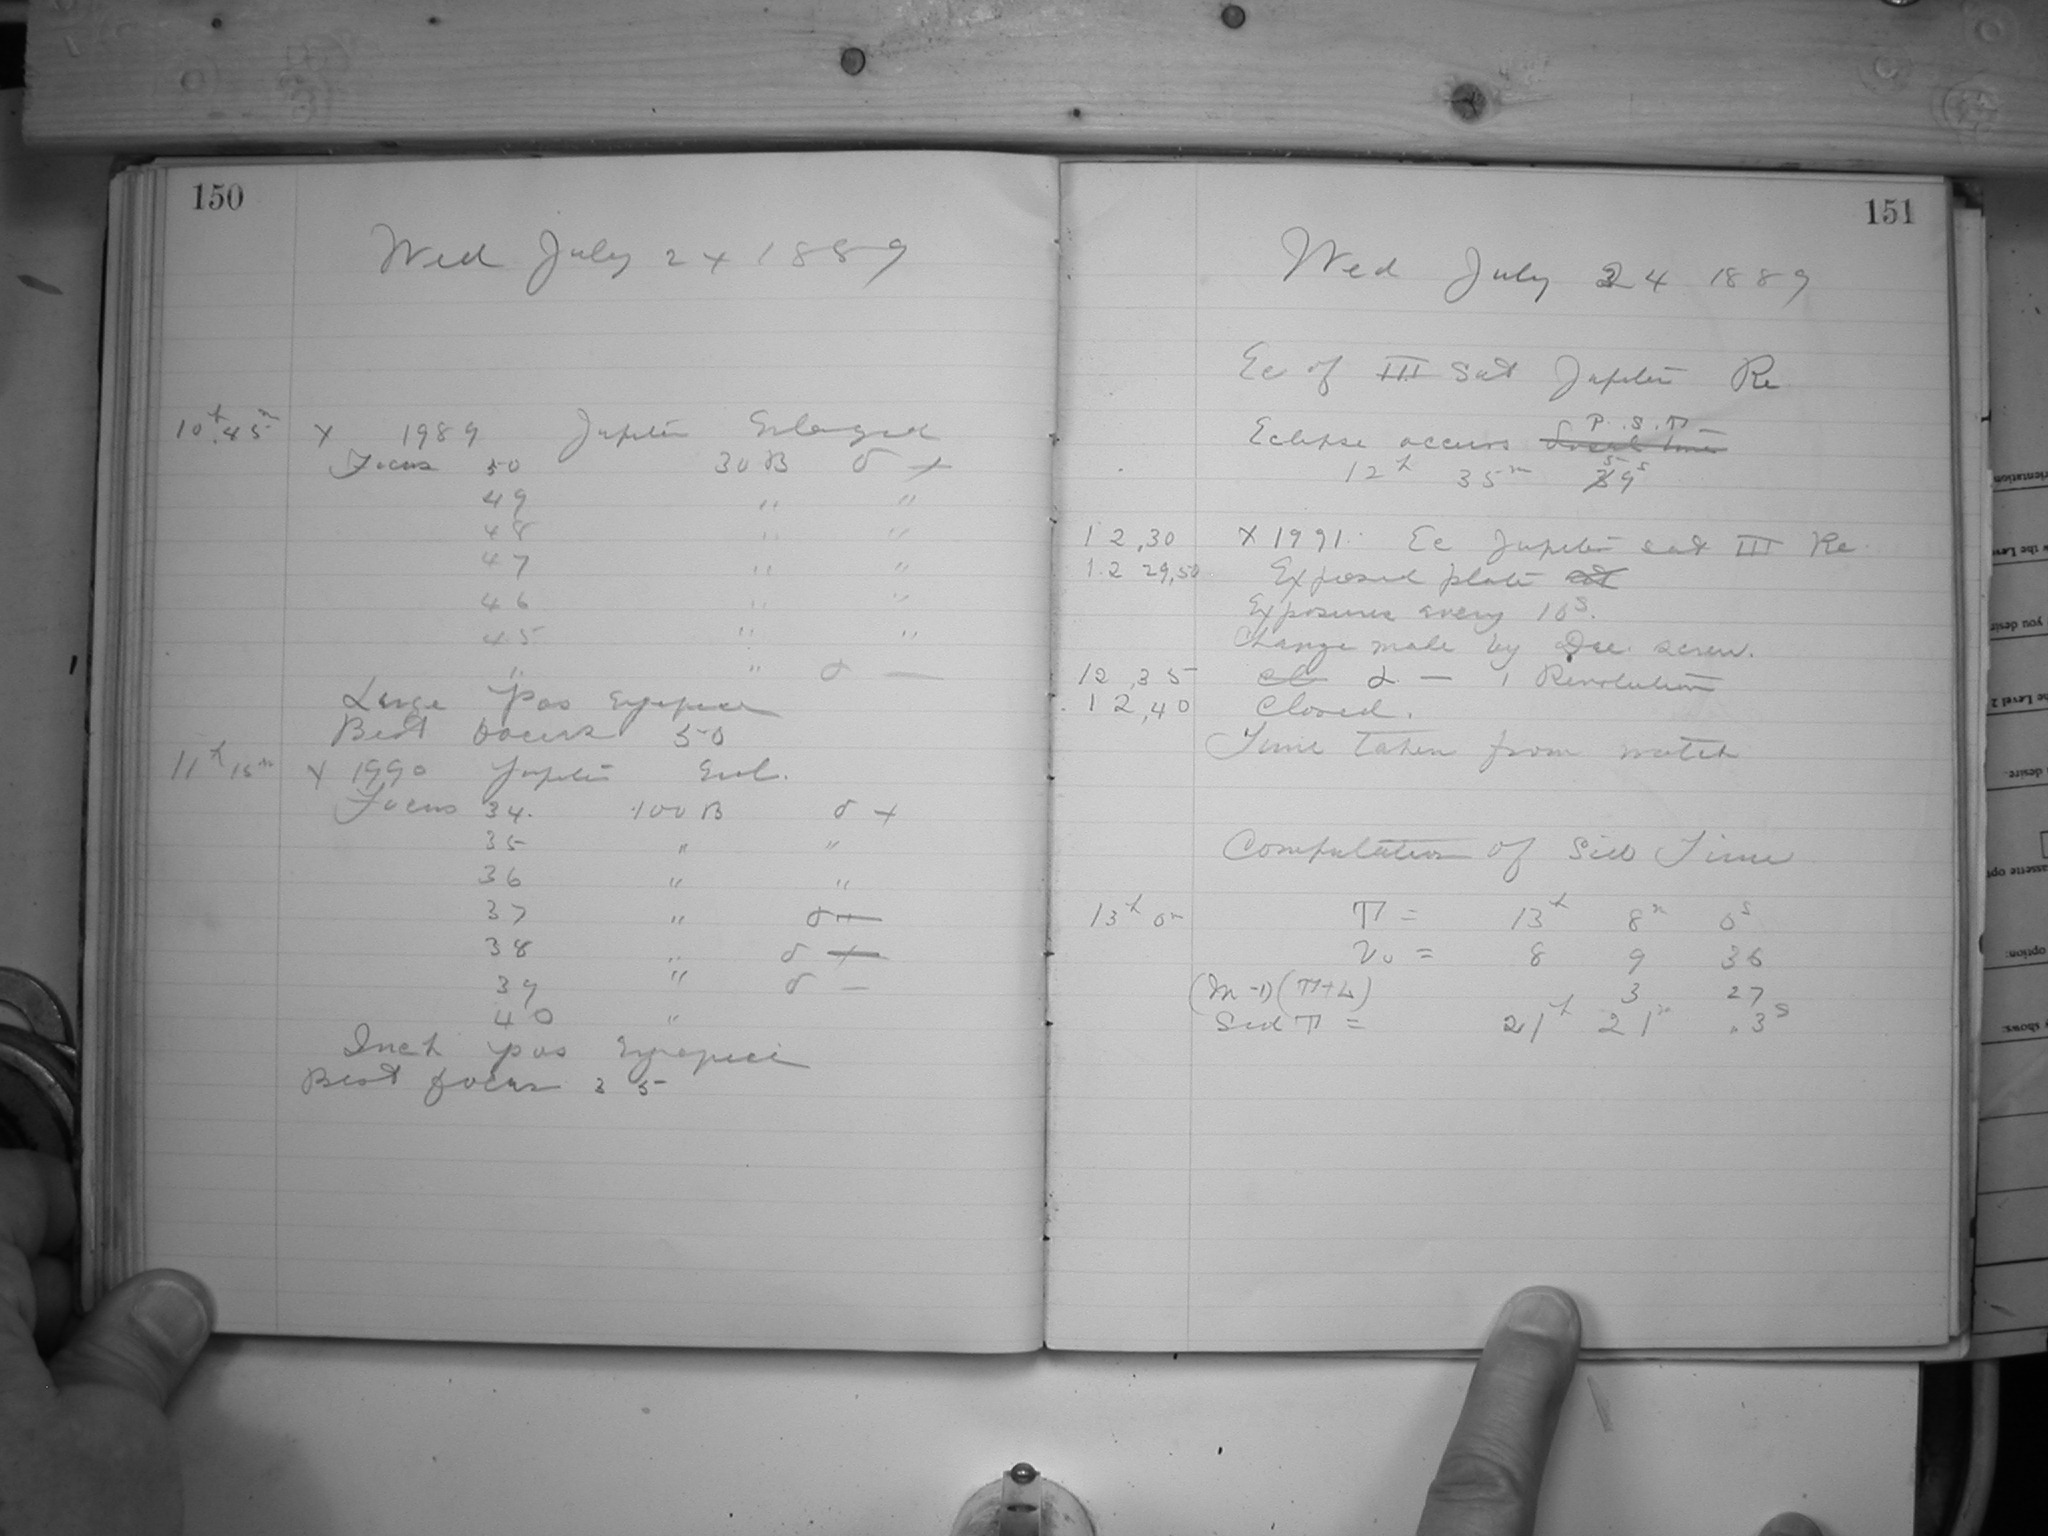 150
Wed July 24 1889
10h.45m X 1989 Jupiter Enlarged
Focus 50 30 B δ +
49 " "
48 " "
47 " "
46 " "
45 " "
" " δ —
Large Pos Eyepiece
Best focus 50
11h 15m X 1990 Jupiter Enl.
Focus 34. 100 B δ +
35 " "
36 " "
37 " δ
38 " δ
39 " δ —
40 "
Inch pos Eyepiece
Best focus 35
151
Wed July 24 1889
Ec of III Sat Jupiter Re
P.S.T.
Eclipse occurs Local time
12h 35m 59s
12,30 X 1991. Ec Jupiter sat III Re.
12 29,50 Exposed plate at
Exposures every 10s.
Change made by Dec. screw.
12,35 α — 1 Revolution
12,40 Closed.
Time taken from watch
Computation of Sid Time
13h 0m T = 13h 8m 0s
V₀ = 8 9 36
(M-1)(T+L) 3 27
Sid T = 21h 21m .3s